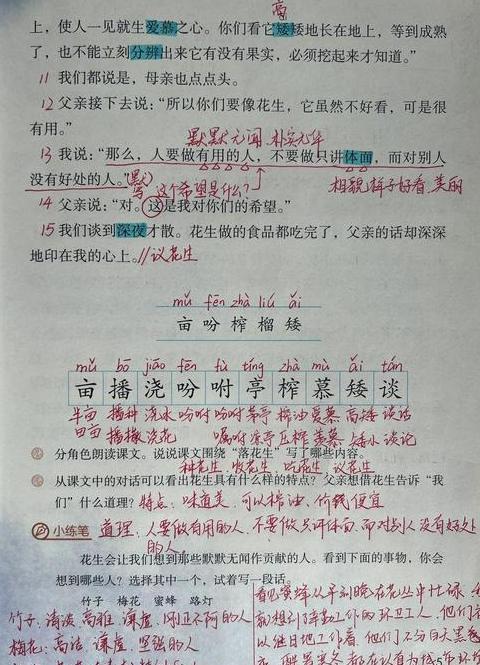 高
上，使人一见就生爱慕之心。你们看它矮矮地长在地上，等到成熟
了，也不能立刻分辨出来它有没有果实，必须挖起来才知道。”
11 我们都说是，母亲也点点头。
12 父亲接下去说：“所以你们要像花生，它虽然不好看，可是很
有用。”
默默无闻 朴实无华
13 我说：“那么，人要做有用的人，不要做只讲体面，而对别人
没有好处的人。”(默)
写 这个希望是什么? 相貌样子好看、美丽
14 父亲说：“对。这是我对你们的希望。”
15 我们谈到深夜才散。花生做的食品都吃完了，父亲的话却深深
地印在我的心上。//议花生
mǔ fēn zhà liú ǎi
亩 吩 榨 榴 矮
mǔ bō jiāo fēn fù tíng zhà mù ǎi tán
亩 播 浇 吩 咐 亭 榨 慕 矮 谈
半亩 播种 浇水 吩咐 吩咐 茅亭 榨油 爱慕 高矮 谈话
田亩 播撒 浇花 嘱咐 凉亭 压榨 羡慕 矮小 谈论
分角色朗读课文。说说课文围绕“落花生”写了哪些内容。
种花生、收花生、吃花生、议花生
从课文中的对话可以看出花生具有什么样的特点？父亲想借花生告诉“我
们”什么道理？特点：味道美、可以榨油、价钱便宜
小练笔 道理：人要做有用的人，不要做只讲体面，而对别人没有好处
的人。
花生会让我们想到那些默默无闻作贡献的人。看到下面的事物，你会
想到哪些人？选择其中一个，试着写一段话。
竹子 梅花 蜜蜂 路灯
看见蜜蜂从早到晚在花丛中忙碌
竹子：清淡 高雅 谦虚、刚正不阿的人
想到辛勤工作的环卫工人，他们
梅花：高洁 谦虚、坚强的人
以继日地工作着，他们不分白天黑